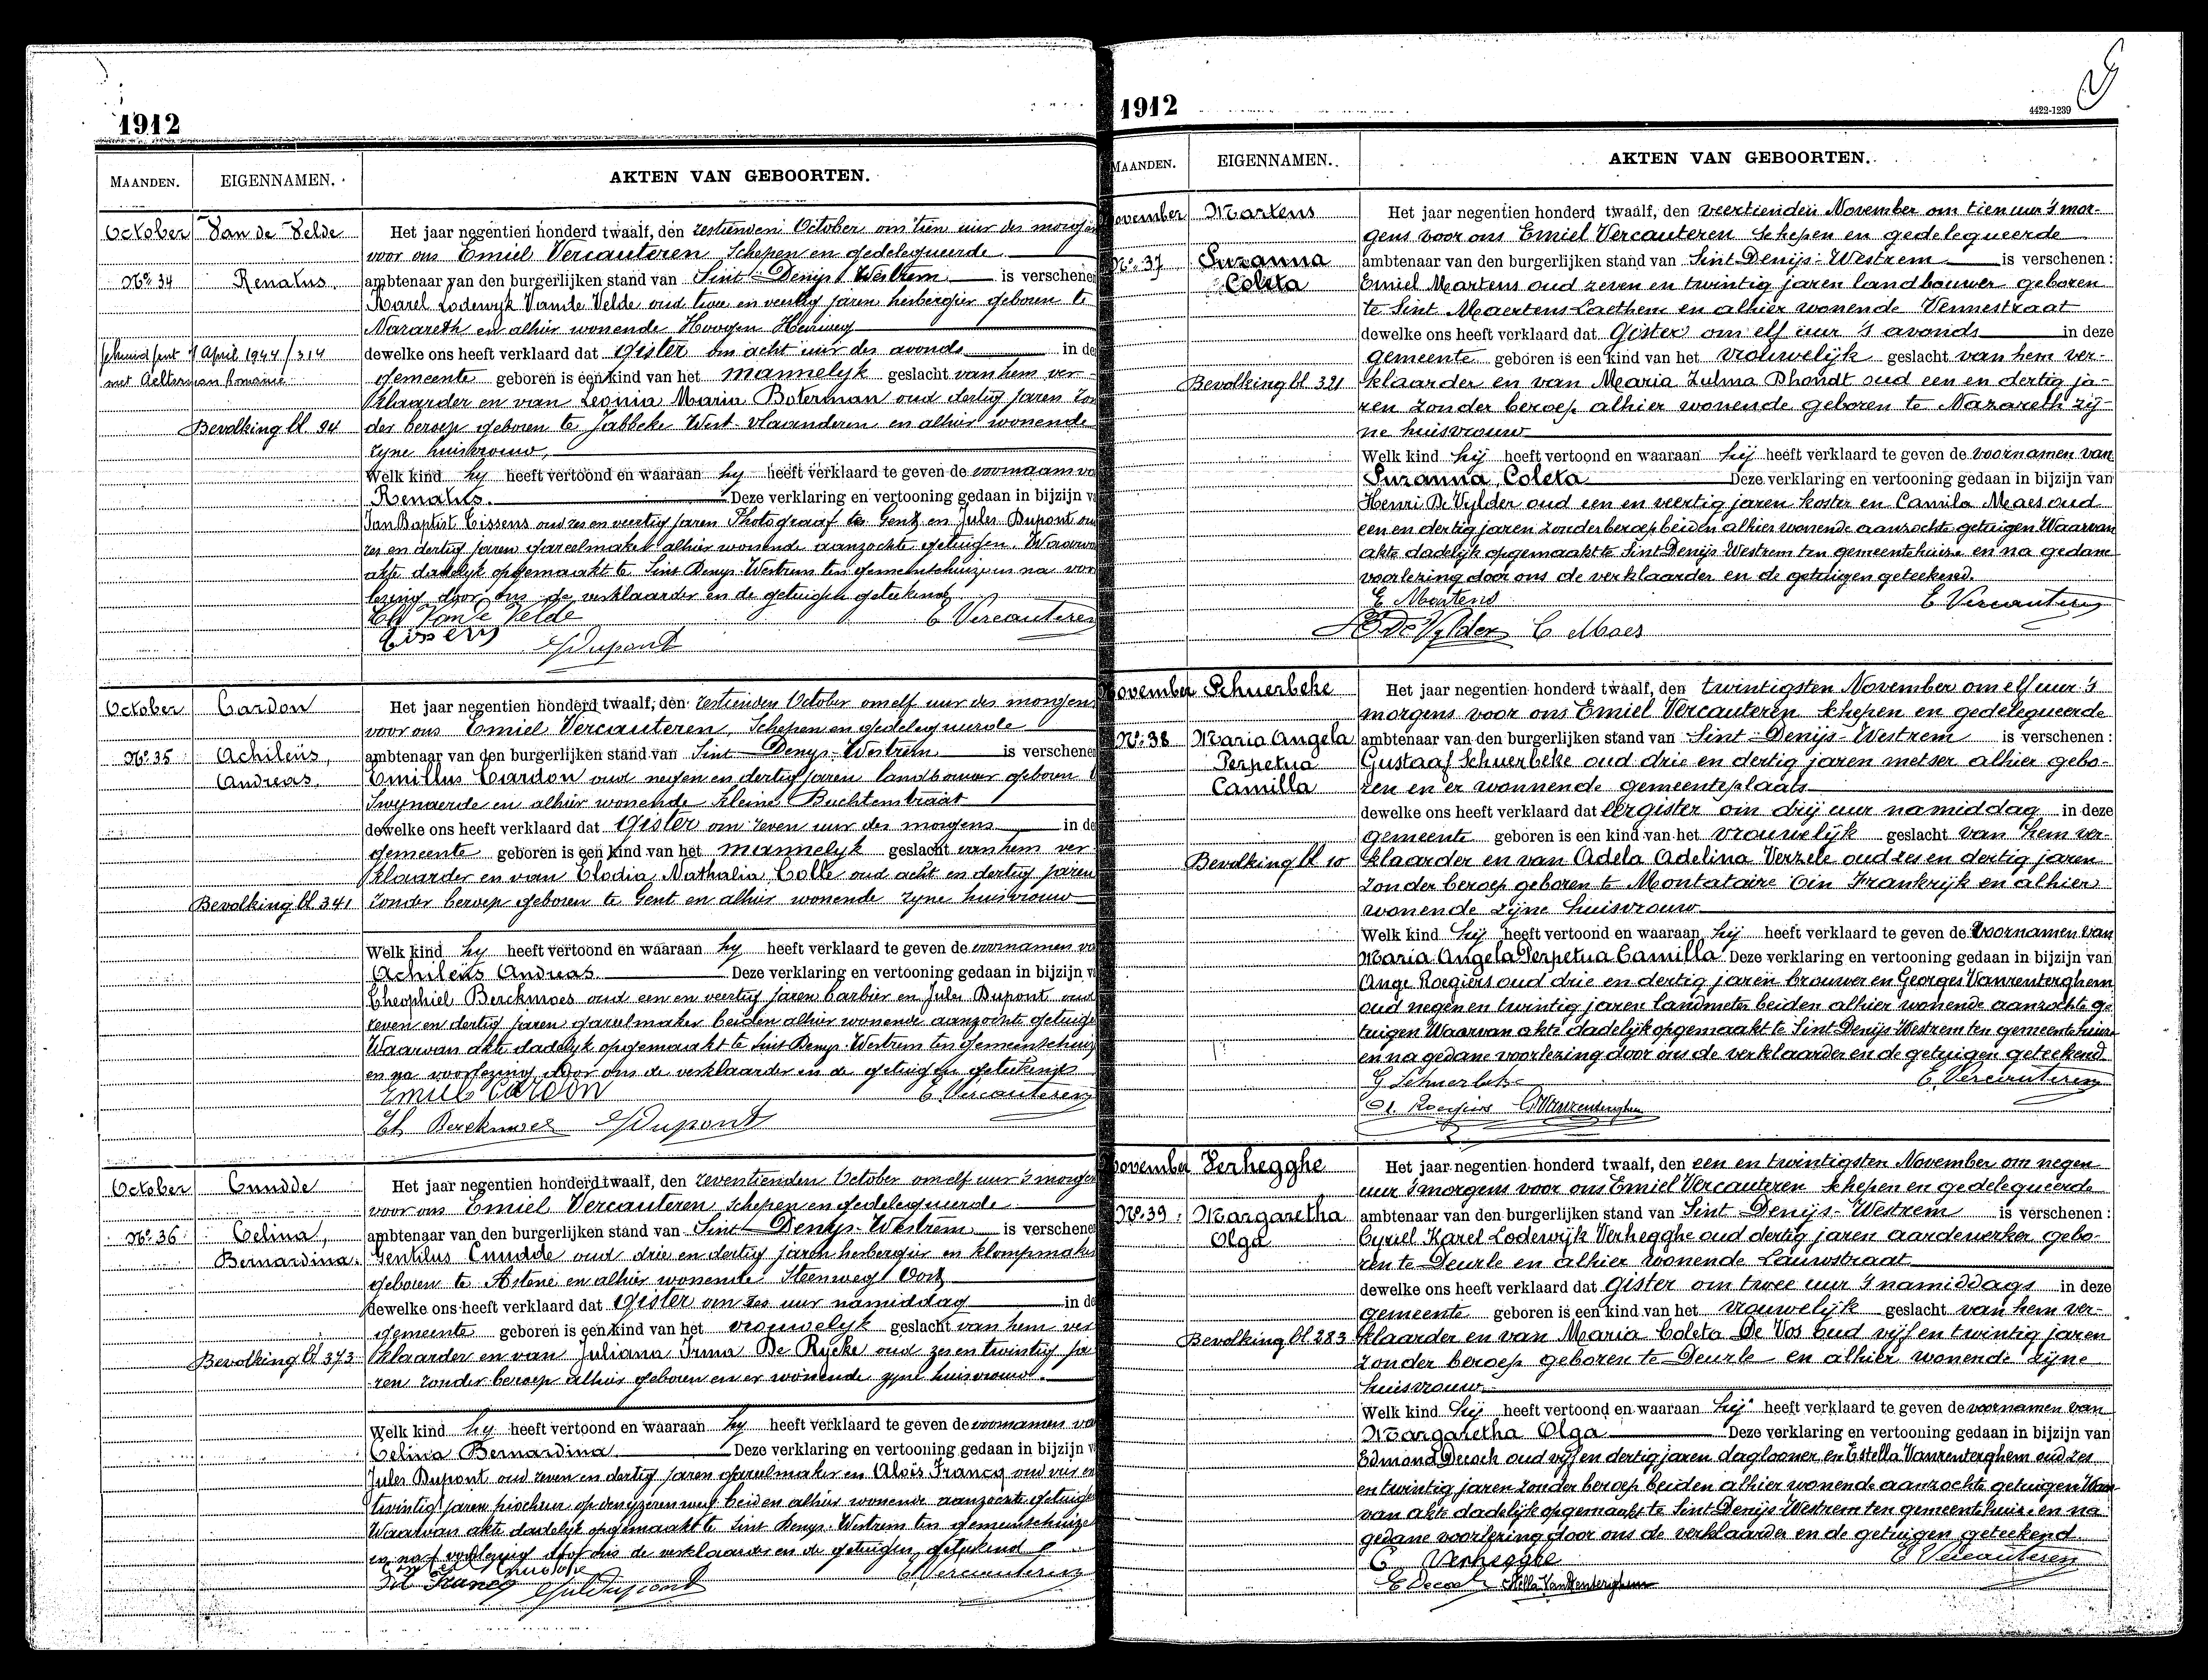 1912
MAANDEN. EIGENNAMEN. AKTEN VAN GEBOORTEN.
October Van de Velde
Het jaar negentien honderd twaalf, den zestienden October om tien uur des morgen
voor ons Emiel Vercauteren Schepen en gedelegueerde
Nº 34 Renatus.
ambtenaar van den burgerlijken stand van Sint-Denys Westrem is verschene
Karel Lodewyk Vande Velde oud twee en veertig jaren herbergier geboren te
Nazareth en alhier wonende Hoogen Heirweg
April 1944 / 314
met Aelterman
dewelke ons heeft verklaard dat Gister om acht uur des avonds in de
gemeente geboren is een kind van het mannelyk geslacht van hem ver-
klaarder en van Leonia Maria Boterman oud dertig jaren zon
Bevolking bl 94
der beroep geboren te Jabbeke West-vlaanderen en alhier wonende
zyne huisvrouw,
Welk kind hy heeft vertoond en waaraan hy heeft verklaard te geven de voornaam va
Renatus. Deze verklaring en vertooning gedaan in bijzijn v
Jan Baptist Cissens oud zes en veertig jaren Photograaf te Gent en Jules Dupont ou
zes en dertig jaren gareelmaker alhier wonende aanzochte getuigen. Waarva
akte dadelyk opgemaakt te Sint Denys-Westrem ten gemeentehuize en na voor
lezing door ons de verklaarder en de getuigen geteekend
Van de Velde E Vercauteren
Cissens Dupont
October Cardon
Het jaar negentien honderd twaalf, den zestienden October om elf uur des morgens
voor ons Emiel Vercauteren, Schepen en gedelegueerde
Nº 35 Achileüs, Andreas.
ambtenaar van den burgerlijken stand van Sint-Denys-Westrem is verschene
Emillus Cardon oud negen en dertig jaren landbouwer geboren t
Swynaerde en alhier wonende kleine Buchtenstraat
dewelke ons heeft verklaard dat Gister om zeven uur des morgens in de
gemeente geboren is een kind van het mannelyk geslacht van hem ver
klaarder en van Elodia Nathalia Colle oud acht en dertig jaren
Bevolking bl 341
zonder beroep geboren te Gent en alhier wonende zyne huisvrouw
Welk kind hy heeft vertoond en waaraan hy heeft verklaard te geven de voornamen va
Achileüs Andreas Deze verklaring en vertooning gedaan in bijzijn v
Theophiel Berckmoes oud een en veertig jaren barbier en Jules Dupont oud
zeven en dertig jaren gareelmaker beiden alhier wonende aanzochte getuige
Waarvan akte dadelyk opgemaakt te Sint Denys-Westrem ten gemeentehuiz
en na voorlezing door ons de verklaarder en de getuigen geteekend
Emiel Cardon E. Vercauteren
Th Berckmoes Dupont
October Cnudde
Het jaar negentien honderd twaalf, den zeventienden October om elf uur 's morgen
voor ons Emiel Vercauteren schepen en gedelegueerde
Nº 36 Celina, Bernardina.
ambtenaar van den burgerlijken stand van Sint-Denys-Westrem is verschene
Gentilus Cnudde oud drie en dertig jaren herbergier en klompmaker
geboren te Astene en alhier wonende Steenweg Oost
dewelke ons heeft verklaard dat Gister om zes uur namiddag in de
gemeente geboren is een kind van het vrouwelyk geslacht van hem ver
Bevolking bl 373
klaarder en van Juliana Irma De Rycke oud zes en twintig ja
ren zonder beroep alhier geboren en er wonende zyne huisvrouw.
Welk kind hy heeft vertoond en waaraan hy heeft verklaard te geven de voornamen va
Celina Bernardina Deze verklaring en vertooning gedaan in bijzijn v
Jules Dupont oud zeven en dertig jaren gareelmaker en Aloïs Francq oud vier en
twintig jaren piocheur op den yzerenweg beiden alhier wonende aanzochte getuige
Waarvan akte dadelyk opgemaakt te Sint Denys-Westrem ten gemeentehuize
en na voorlezing door ons de verklaarder en de getuigen geteekend
Cnudde E Vercauteren
Francq Jul Dupont
1912
4422-1239
MAANDEN. EIGENNAMEN. AKTEN VAN GEBOORTEN.
November Martens
Het jaar negentien honderd twaalf, den veertienden November om tien uur 's mor-
gens voor ons Emiel Vercauteren schepen en gedelegueerde
Nº 37 Suzanna Coleta
ambtenaar van den burgerlijken stand van Sint-Denijs-Westrem is verschenen:
Emiel Martens oud zeven en twintig jaren landbouwer geboren
te Sint Maertens-Laethem en alhier wonende Vennestraat
dewelke ons heeft verklaard dat Gister om elf uur 's avonds in deze
gemeente geboren is een kind van het vrouwelijk geslacht van hem ver-
Bevolking bl 321
klaarder en van Maria Zulma Dhondt oud een en dertig ja-
ren zonder beroep alhier wonende geboren te Nazareth zij-
ne huisvrouw
Welk kind hij heeft vertoond en waaraan hij heeft verklaard te geven de voornamen van
Suzanna, Coleta Deze verklaring en vertooning gedaan in bijzijn van
Henri De Vylder oud een en veertig jaren koster en Camila Maes oud
een en dertig jaren zonder beroep beiden alhier wonende aanzochte getuigen Waarvan
akte dadelijk opgemaakt te Sint Denijs Westrem ten gemeentehuize en na gedane
voorlezing door ons de verklaarder en de getuigen geteekend.
E Martens E Vercauteren
De Vylder C Maes
November Schuerbeke
Het jaar negentien honderd twaalf, den twintigsten November om elf uur 's
morgens voor ons Emiel Vercauteren schepen en gedelegueerde
Nº 38 Maria Angela Perpetua Camilla
ambtenaar van den burgerlijken stand van Sint-Denijs-Westrem is verschenen:
Gustaaf Schuerbeke oud drie en dertig jaren metser alhier gebo-
ren en er wonnende gemeenteplaats
dewelke ons heeft verklaard dat eergister om drij uur namiddag in deze
gemeente geboren is een kind van het vrouwelijk geslacht van hem ver-
Bevolking bl 10
klaarder en van Adela Adelina Verzele oud zes en dertig jaren
zonder beroep geboren te Montataire in Frankrijk en alhier
wonende zijne huisvrouw
Welk kind hij heeft vertoond en waaraan hij heeft verklaard te geven de Voornamen van
Maria Angela Perpetua Camilla Deze verklaring en vertooning gedaan in bijzijn van
Ange Roegiers oud drie en dertig jaren brouwer en Georges Vanrenterghem
oud negen en twintig jaren landmeter beiden alhier wonende aanzochte ge-
tuigen Waarvan akte dadelijk opgemaakt te Sint Denijs Westrem ten gemeentehuize
en na gedane voorlezing door ons de verklaarder en de getuigen geteekend.
G Schuerbeke E. Vercauteren
A. Roegiers G Vanrenterghem
November Verhegghe
Het jaar negentien honderd twaalf, den een en twintigsten November om negen
uur 's morgens voor ons Emiel Vercauteren schepen en gedelegueerde
Nº 39 Margaretha Olga
ambtenaar van den burgerlijken stand van Sint-Denijs-Westrem is verschenen:
Cyriel Karel Lodewijk Verhegghe oud dertig jaren aardewerker gebo-
ren te Deurle en alhier wonende Lauwstraat
dewelke ons heeft verklaard dat Gister om twee uur 's namiddags in deze
gemeente geboren is een kind van het vrouwelijk geslacht van hem ver-
Bevolking bl 283
klaarder en van Maria Coleta De Vos oud vijf en twintig jaren
zonder beroep geboren te Deurle en alhier wonende zijne
huisvrouw
Welk kind hij heeft vertoond en waaraan hij heeft verklaard te geven de voornamen van
Margaretha Olga Deze verklaring en vertooning gedaan in bijzijn van
Edmond Decock oud vijf en dertig jaren daglooner en Estella Vanrenterghem oud zes
en twintig jaren zonder beroep beiden alhier wonende aanzochte getuigen Waar
van akte dadelijk opgemaakt te Sint Denijs Westrem ten gemeentehuize en na
gedane voorlezing door ons de verklaarder en de getuigen geteekend
C Verhegghe E Vercauteren
E Decock Stella Van Renterghem